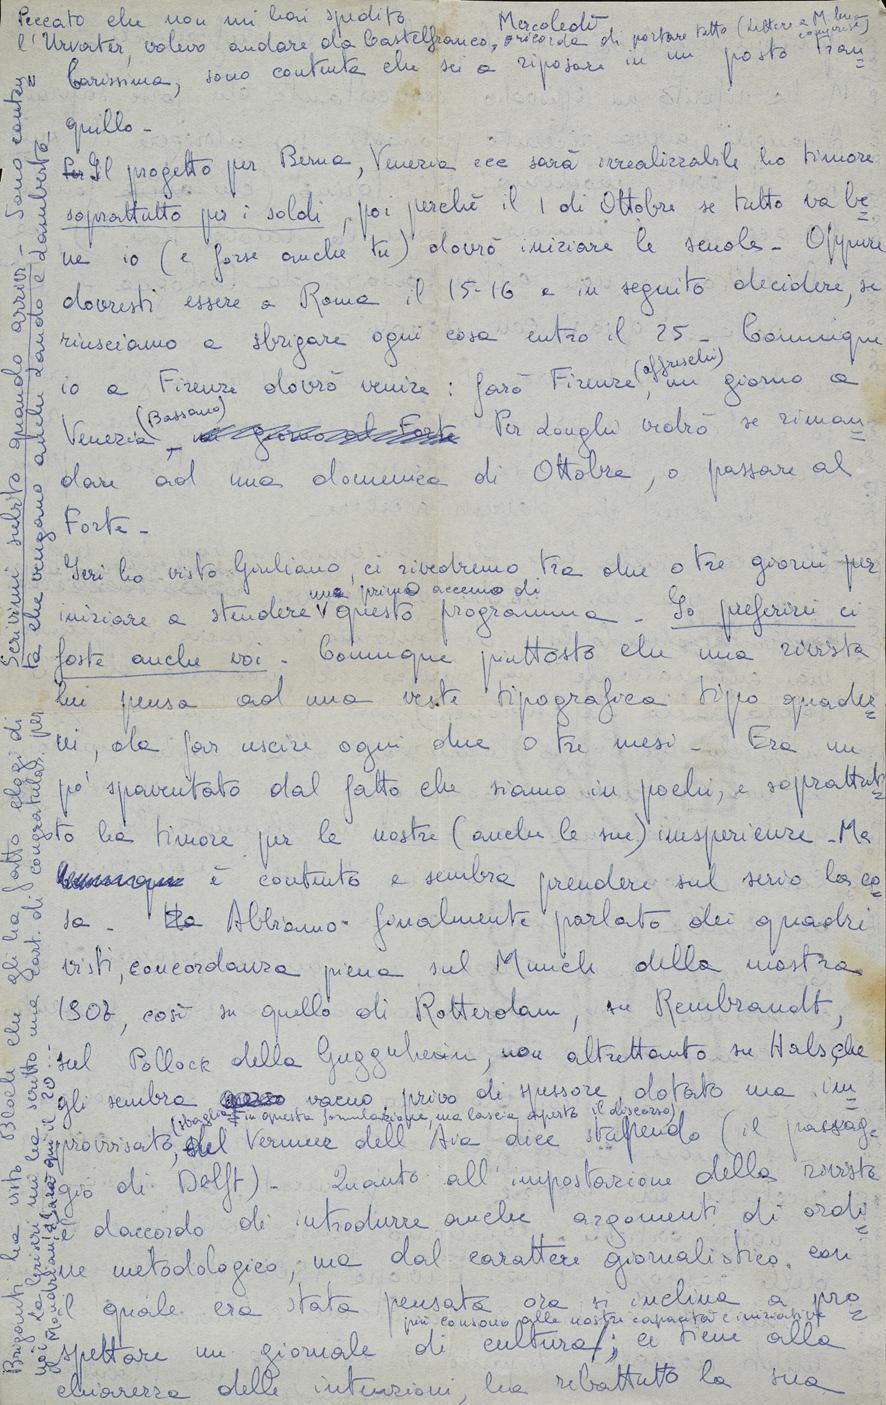 Peccato che non mi hai spedito
l'Urvater, volevo andare da Castelfranco,
Mercoledì
ricorda di portare tutto (lettere a M. Luisa comprese)
Carissima, sono contenta che sei a riposare in un posto tran=
quillo -
Il progetto per Berna, Venezia ecc sarà irrealizzabile ho timore
soprattutto per i soldi, poi perché il 1 di Ottobre se tutto va be=
ne io (e forse anche tu) dovrò iniziare le scuole - Oppure
dovresti essere a Roma il 15-16 e in seguito decidere, se
riusciamo a sbrigare ogni cosa entro il 25 - Comunque
io a Firenze dovrò venire: farò Firenze (affreschi), un giorno a
Venezia (Bassano) - un giorno al Forte Per Longhi vedrò se riman=
dare ad una domenica di Ottobre, o passare al
Forte -
Ieri ho visto Giuliano, ci rivedremo tra due o tre giorni per
iniziare a stendere una primo accenno di questo programma - Io preferirei ci
foste anche voi - Comunque piuttosto che una rivista
lui pensa ad una veste tipografica tipo quader=
ni, da far uscire ogni due o tre mesi - Era un
po' spaventato dal fatto che siamo in pochi, e soprattut=
to ha timore per le nostre (anche le sue) inesperienze - Ma
è contento e sembra prendere sul serio la co=
sa - Abbiamo finalmente parlato dei quadri
visti, concordanza piena sul Munch della mostra
1902, così su quello di Rotterdam, su Rembrandt,
sul Pollock della Guggenheim, non altrettanto su Hals che
gli sembra vacuo, privo di spessore, dotato ma im=
(sbaglia in questa formulazione, ma lascia aperto il discorso)
provvisato, del Vermeer dell'Aia dice stupendo (il passag=
gio di Delft) - Quanto all'impostazione della rivista
è daccordo di introdurre anche argomenti di ordi=
ne metodologico, ma dal carattere giornalistico con
il quale era stata pensata ora si inclina a pro=
più consono alle nostre capacità e iniziative
spettare un giornale di cultura; ci tiene alla
chiarezza delle intenzioni, ha ribattuto la sua
Scrivimi subito quando arrivi - Sono conten=
ta che vengano anche Lando e Lamberto
Briganti ha visto Bloch che gli ha fatto elogi di
noi. La Griseri mi ha scritto una cart. di congratulaz. per
Mondrian! Sarà qui il 20!